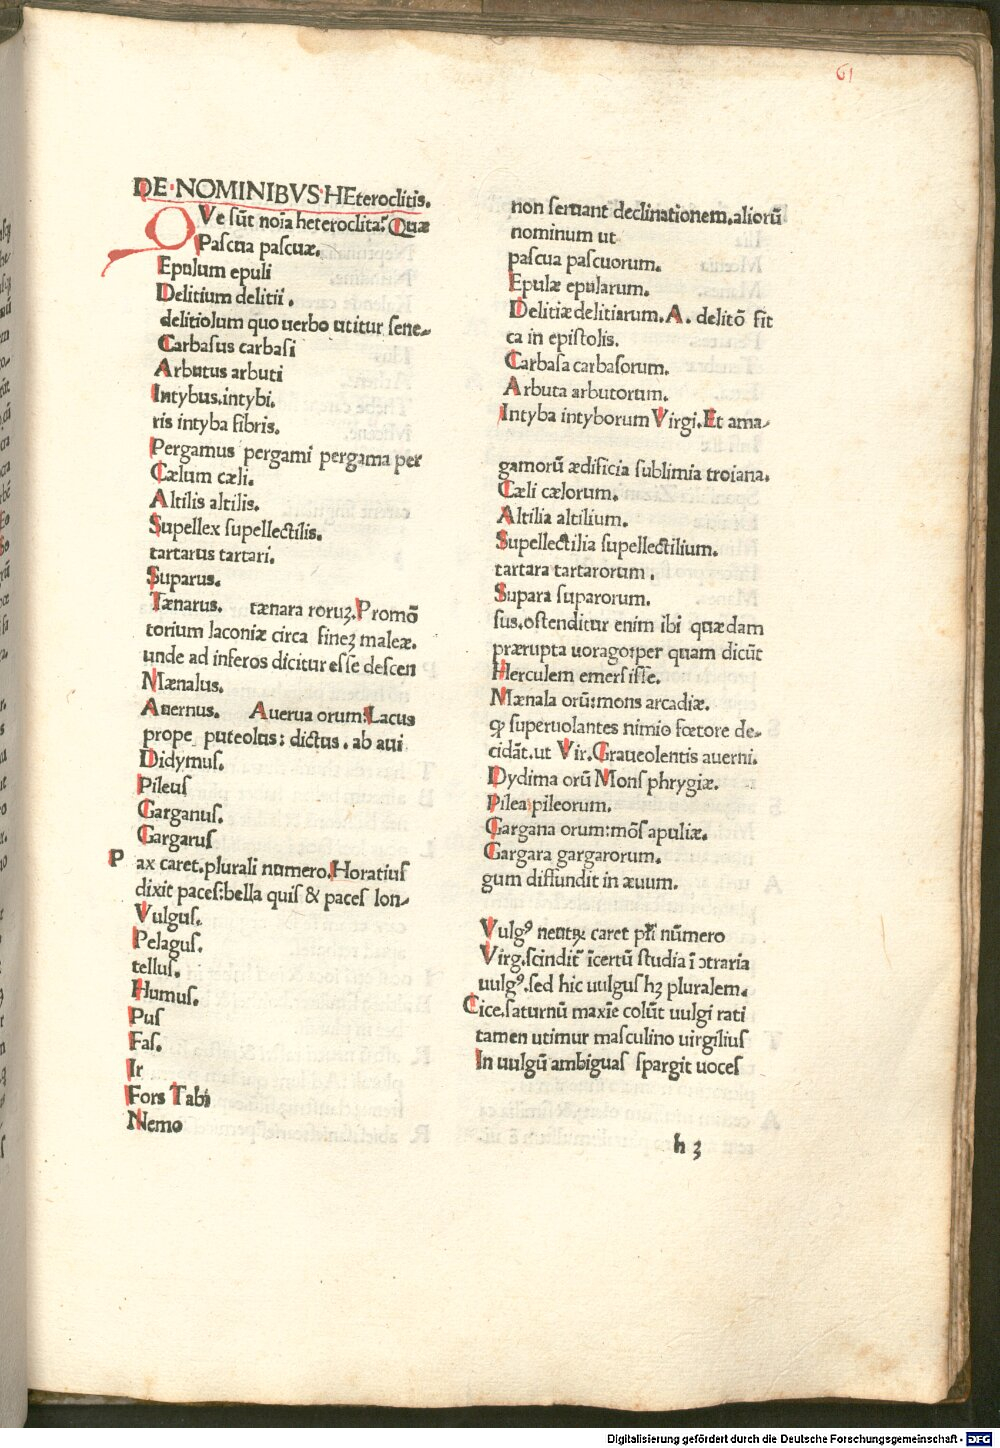 61
DE·NOMINIBVS·HEteroclitis.
QVe sũt noĩa heteroclita? Quæ
Pascua pascuæ.
Epulum epuli
Delitium delitii.
delitiolum quo uerbo utitur sene-
Carbasus carbasi
Arbutus arbuti
Intybus.intybi.
ris intyba fibris.
Pergamus pergami pergama per
Cælum cæli.
Altilis altilis.
Supellex supellectilis.
tartarus tartari.
Suparus.
Tænarus. tænara roruꝫ.Promõ
torium laconiæ circa fineꝫ maleæ.
unde ad inferos dicitur esse descen
Mænalus.
Auernus. Auerua orum:Lacus
prope puteolus: dictus. ab aui
Didymus.
Pileus
Garganus.
Gargarus
Pax caret.plurali numero.Horatius
dixit paces:bella quis & paces lon-
Vulgus.
Pelagus.
tellus.
Humus.
Pus
Fas.
Ir
Fors Tabi
Nemo
non seruant declinationem.aliorũ
nominum ut
pascua pascuorum.
Epulæ epularum.
Delitiæ delitiarum.A. delitõ fit
ca in epistolis.
Carbasa carbasorum.
Arbuta arbutorum.
Intyba intyborum Virgi.Et ama-
gamorũ ædificia sublimia troiana.
Cæli cælorum.
Altilia altilium.
Supellectilia supellectilium.
tartara tartarorum.
Supara suparorum.
sus.ostenditur enim ibi quædam
prærupta uorago:per quam dicũt
Herculem emersisse.
Mænala orũ:mons arcadiæ.
ꝙ superuolantes nimio fœtore de-
cidãt.ut Vir.Graueolentis auerni.
Dydima orũ Mons phrygiæ.
Pilea pileorum.
Gargana orum:mõs apuliæ.
Gargara gargarorum.
gum diffundit in æuum.
Vulgꝰ neutꝝ caret pľi nũmero
Virg.scindiť ĩcertũ studia ĩ ↄtraria
uulgꝰ.sed hic uulgus hꝫ pluralem.
Cice.saturnũ maxĩe colũt uulgi rati
tamen utimur masculino uirgilius
In uulgũ ambiguas spargit uoces
h 3
Digitalisierung gefördert durch die Deutsche Forschungsgemeinschaft - DFG